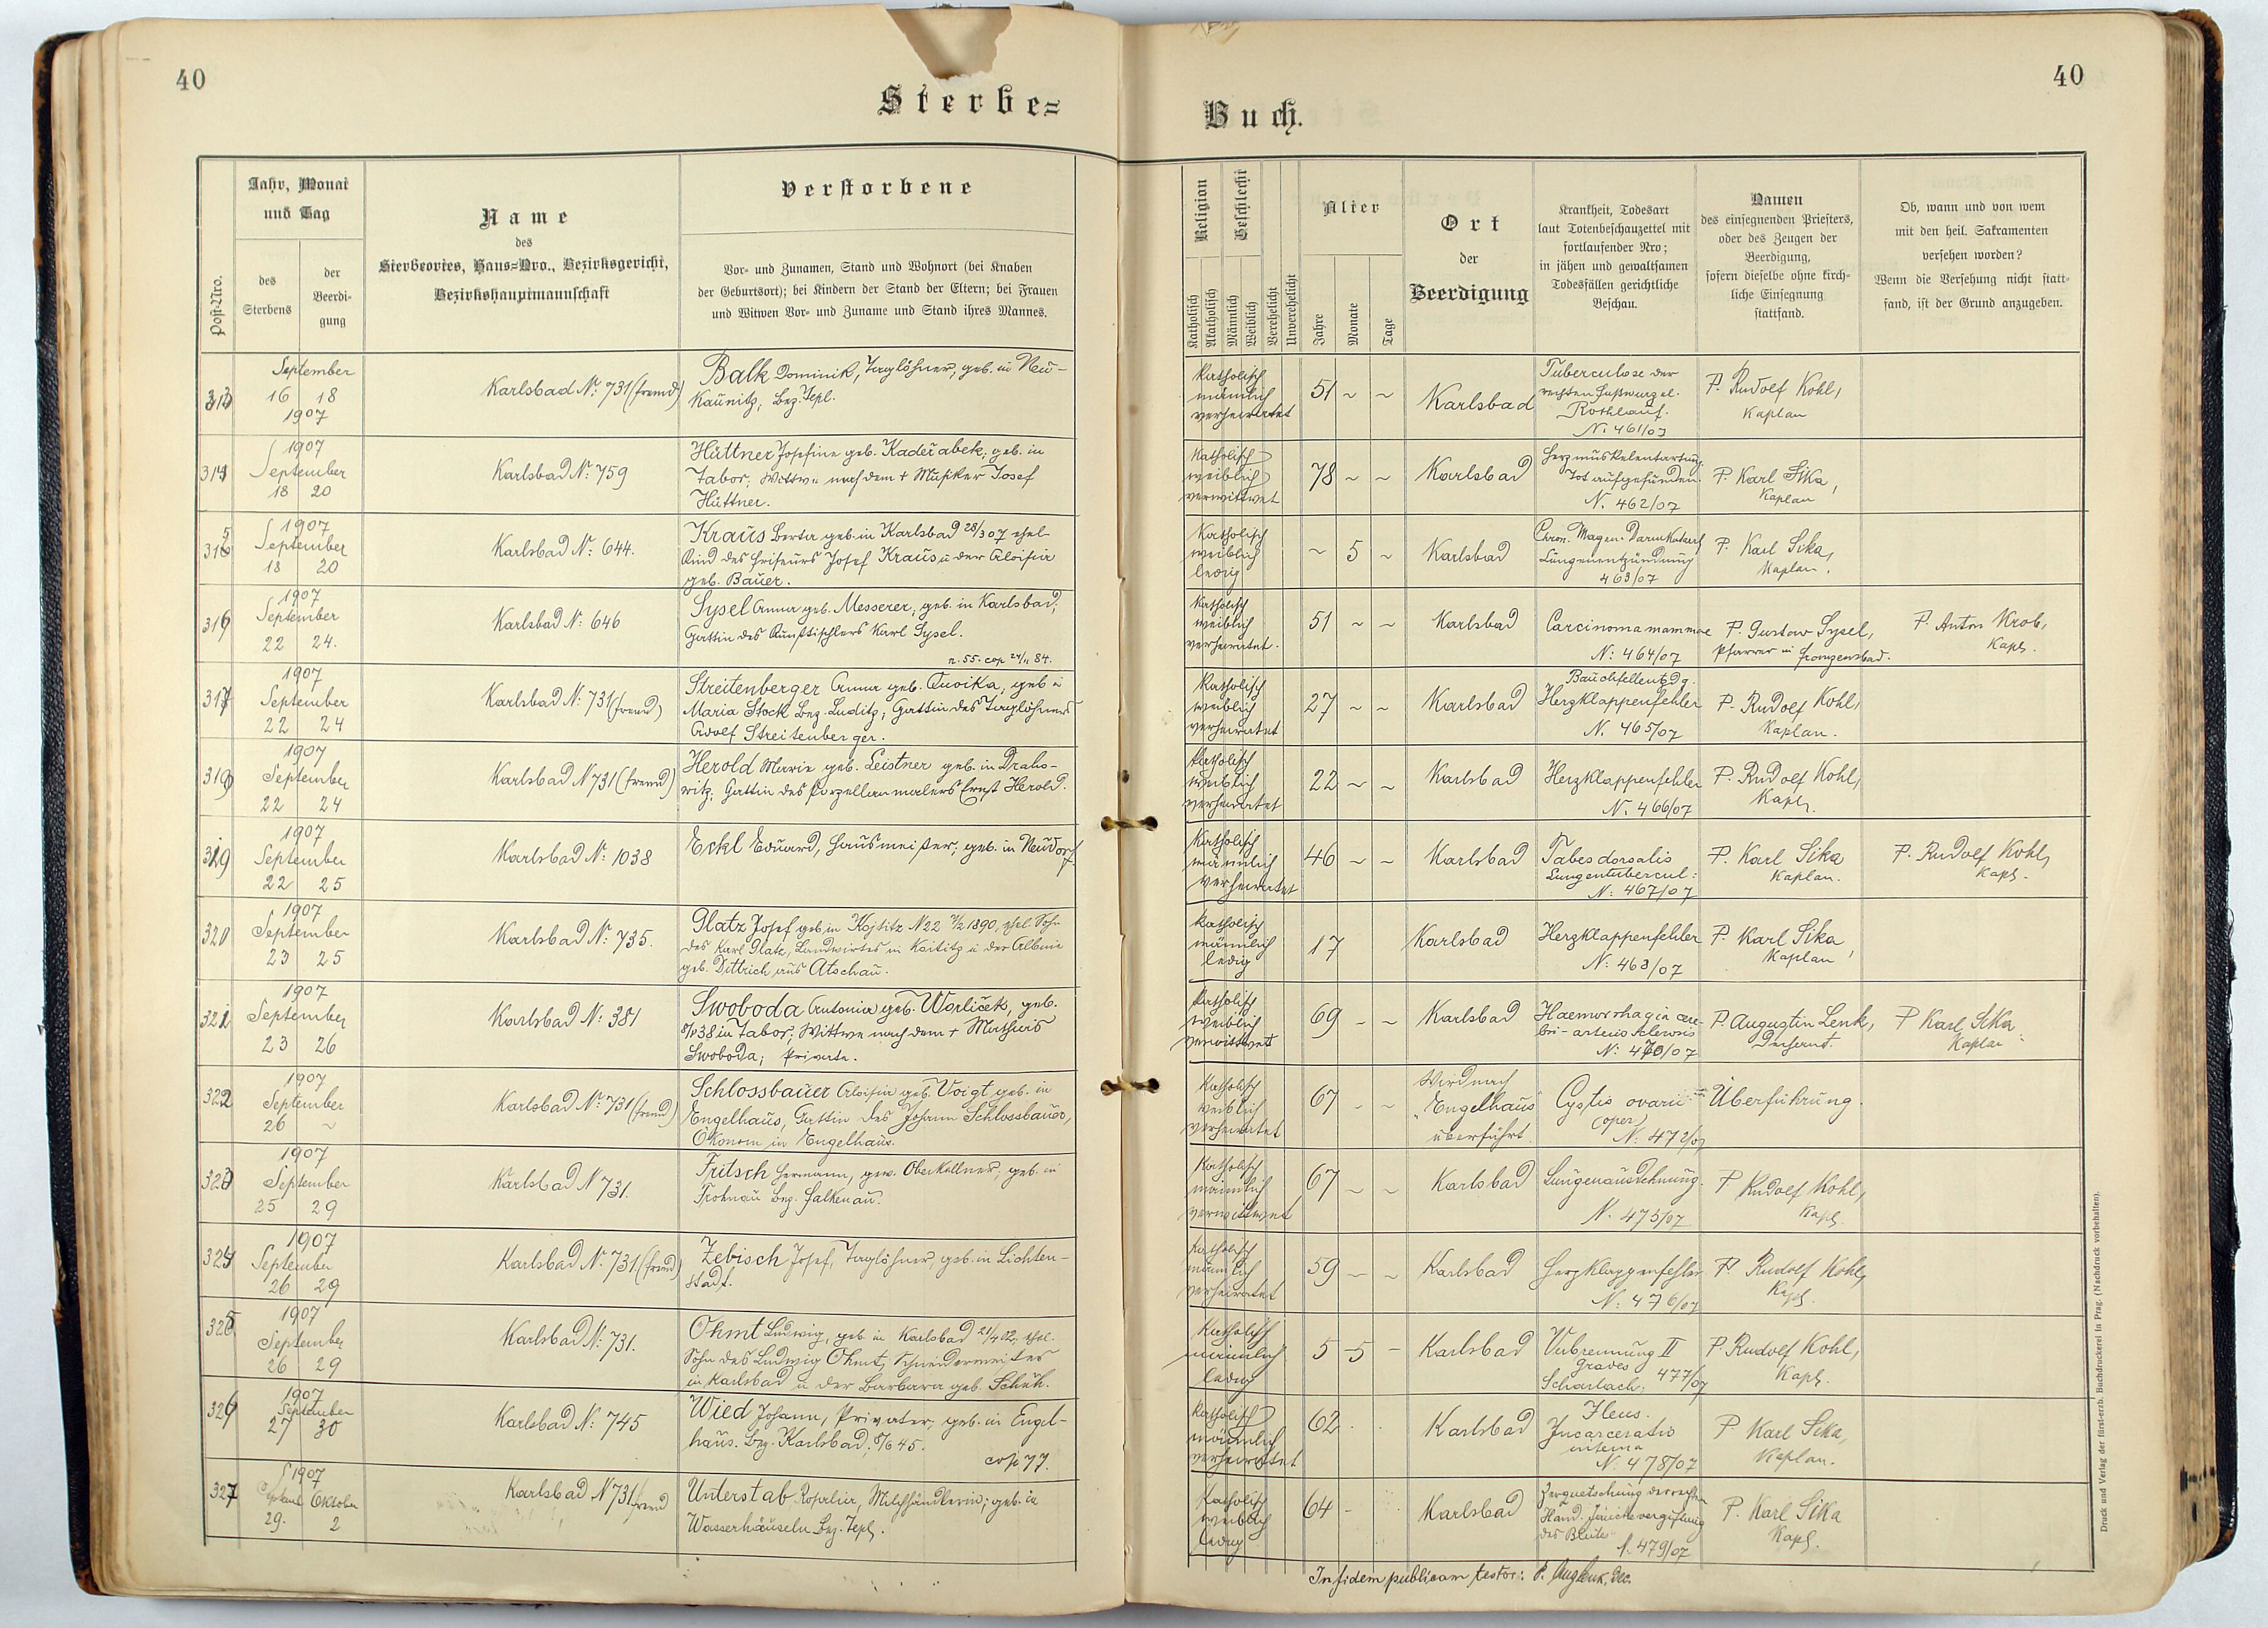 40
Sterbe=
Jahr, Monat
und Tag
des
Sterbens
der
Beerdi-
gung
Post-Nro.
Name
des
Sterbeortes, Haus=Nro., Bezirksgericht,
Bezirkshauptmannschaft
Verstorbene
Vor- und Zunamen, Stand und Wohnort (bei Knaben
der Geburtsort); bei Kindern der Stand der Eltern; bei Frauen
und Witwen Vor- und Zuname und Stand ihres Mannes.
313
September
16 18
1907
Karlsbad No: 731 (fremd)
Balk Dominik, Taglöhner, geb. in Neu-
Kaunitz, Bez. Tepl.
314
1907
September
18 20
Karlsbad No: 759
Hüttner Josefine geb. Kadeřabek, geb. in
Tabor, Wittwe nach dem + Musiker Josef
Hüttner.
315
1907
September
18 20
Karlsbad No: 644.
Kraus Berta geb. in Karlsbad 28/3 07 ehel.
Kind des Friseurs Josef Kraus u der Aloisia
geb. Bauer.
316
1907
September
22 24.
Karlsbad N: 646
Sysel Anna geb. Messerer, geb. in Karlsbad,
Gattin des Kunsttischlers Karl Sysel.
n. 55. cop 24/11 84.
317
1907
September
22 24
Karlsbad N: 731 (fremd)
Streitenberger Anna geb. Quoika, geb in
Maria Stock Bez. Luditz; Gattin des Taglöhners
Adolf Streitenberger.
318
1907
September
22 24
Karlsbad N 731 (fremd)
Herold Marie geb. Leistner geb. in Draho-
witz; Gattin des Porzellanmalers Ernst Herold.
319
1907
September
22 25
Karlsbad No: 1038
Eckl Eduard, Hausmeister, geb. in Neudorf
320
1907
September
23 25
Karlsbad No: 735.
Glatz Josef geb in Kojtitz N22 1890, ehel. Sohn
des Karl Glatz, Landwirtes in Koititz u der Albine
geb. Dittrich aus Atschau.
321
1907
September
23 26
Karlsbad N: 381
Swoboda Antonia geb. Worliček, geb.
38 in Tabor; Wittwe nach dem + Mathias
Swoboda; Private.
322
1907
September
26 ~
Karlsbad No: 731 (fremd)
Schlossbauer Aloisia geb. Voigt, geb. in
Engelhaus, Gattin des Johann Schlossbauer,
Ökonom in Engelhaus.
323
1907
September
25 29
Karlsbad N 731.
Fritsch Hermann, gew. Oberkellner, geb. in
Frohnau Bez. Falkenau.
324
1907
September
26 29
Karlsbad No. 731 (fremd)
Zebisch Josef, Taglöhner, geb. in Lichten-
stadt.
325
1907
September
26 29
Karlsbad No: 731.
Ohmt Ludwig, geb in Karlsbad 21/4 02; ehel.
Sohn des Ludwig Ohmt, Schneidermeister
in Karlsbad u der Barbara geb. Schuh.
326
1907
September
27 30
Karlsbad N: 745
Wied Johann, Privater, geb. in Engel-
haus. Bez. Karlsbad, 8/6 45.
cop 77.
327
1907
Septemb Oktober
29. 2
Karlsbad N 731 fremd
Unterstab Rosalia, Milchhändlerin; geb. in
Wasserhäuseln Bez. Tepl.
40
Buch.
Religion
Katholisch
Akatholisch
Geschlecht
Männlich
Weiblich
Verehelicht
Unverehelicht
Alter
Jahre
Monate
Tage
Ort
der
Beerdigung
Krankheit, Todesart
laut Totenbeschauzettel mit
fortlaufender Nro;
in jähen und gewaltsamen
Todesfällen gerichtliche
Beschau.
Namen
des einsegnenden Priesters,
oder des Zeugen der
Beerdigung,
sofern dieselbe ohne kirch-
liche Einsegnung
stattfand.
Ob, wann und von wem
mit den heil. Sakramenten
versehen worden?
Wenn die Versehung nicht statt-
fand, ist der Grund anzugeben.
Katholisch
männlich
verheiratet
51 ~ ~
Karlsbad
Tuberculose der
rechten Fußwurzel.
Rothlauf.
N. 461/07
P. Rudolf Kohl,
Kaplan
Katholisch
weiblich
verwittwet
78 ~ ~
Karlsbad
Herzmuskelentartung.
Tot aufgefunden.
N. 462/07
P. Karl Sika,
Kaplan
Katholisch
weiblich
ledig
~ 5 ~
Karlsbad
Chron. Magen-Darmkatarrh
Lungenentzündung
463/07
P. Karl Sika,
Kaplan.
Katholisch
weiblich
verheiratet.
51 ~ ~
Karlsbad
Carcinoma mammae
N: 464/07
P. Gustav Sysel,
Pfarrer in Franzensbad.
P. Anton Krob,
Kapl.
Katholisch
weiblich
verheiratet
27 ~ ~
Karlsbad
Bauchfellentzdg.
Herzklappenfehler
N. 465/07
P. Rudolf Kohl,
Kaplan.
Katholisch
weiblich
verheiratet
22 ~ ~
Karlsbad
Herzklappenfehler
N. 466/07
P. Rudolf Kohl,
Kapl.
Katholisch
männlich
verheiratet
46 ~ ~
Karlsbad
Tabes dorsalis
Lungentubercul:
N: 467/07
P. Karl Sika
Kaplan.
P. Rudolf Kohl,
Kapl.
Katholisch
männlich
ledig
17
Karlsbad
Herzklappenfehler
N: 468/07
P. Karl Sika,
Kaplan
Katholisch
weiblich
verwittwet
69 - ~
Karlsbad
Haemorrhagia cere-
bri - arterio sclerosis
N: 470/07
P. Augustin Lenk,
Dechant.
P Karl Sika
Kaplan
Katholisch
weiblich
verheiratet
67 - ~
Wird nach
"Engelhaus"
überführt.
Cystis ovarii
oper
N. 472/07
Überführung.
Katholisch
männlich
verwittwet
67 ~ ~
Karlsbad
Lungenausdehnung.
N. 473/07
P Rudolf Kohl,
Kapl.
Katholisch
männlich
verheiratet
59 - ~
Karlsbad
Herzklappenfehler
N: 476/07
P. Rudolf Kohl,
Kapl.
Katholisch
männlich
ledig
5 - 5 -
Karlsbad
Verbrennung II
Grades
Scharlach, 477/07
P. Rudolf Kohl,
Kapl.
Katholisch
männlich
verheiratet
62
Karlsbad
Ileus.
Incarceratio
interna
N. 478/07
P Karl Sika,
Kaplan.
Katholisch
weiblich
ledig
64 -
Karlsbad
Zerquetschung der rechten
Hand. Jauchevergiftung
des Blutes
N. 479/07
P. Karl Sika
Kapl.
In fidem publicam testor: P. Aug Lenk, Dec.
Druck und Verlag der fürst-erzb. Buchdruckerei in Prag. (Nachdruck vorbehalten).